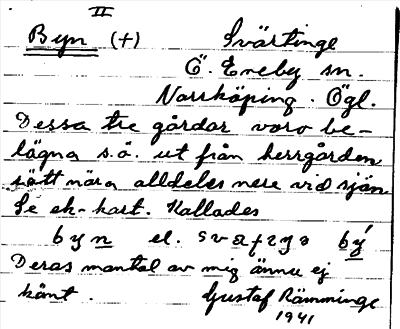 II
Byn (+) Svärtinge
Ö. Eneby sn.
Norrköping. Ögl.
Dessa tre gårdar voro be-
lägna s.ö. ut från herrgården
rätt nära alldeles nere vid sjön
Se ek-kart. Kallades
byn el. bý
Deras mantal av mig ännu ej
känt. Gustaf Rämminge
1941